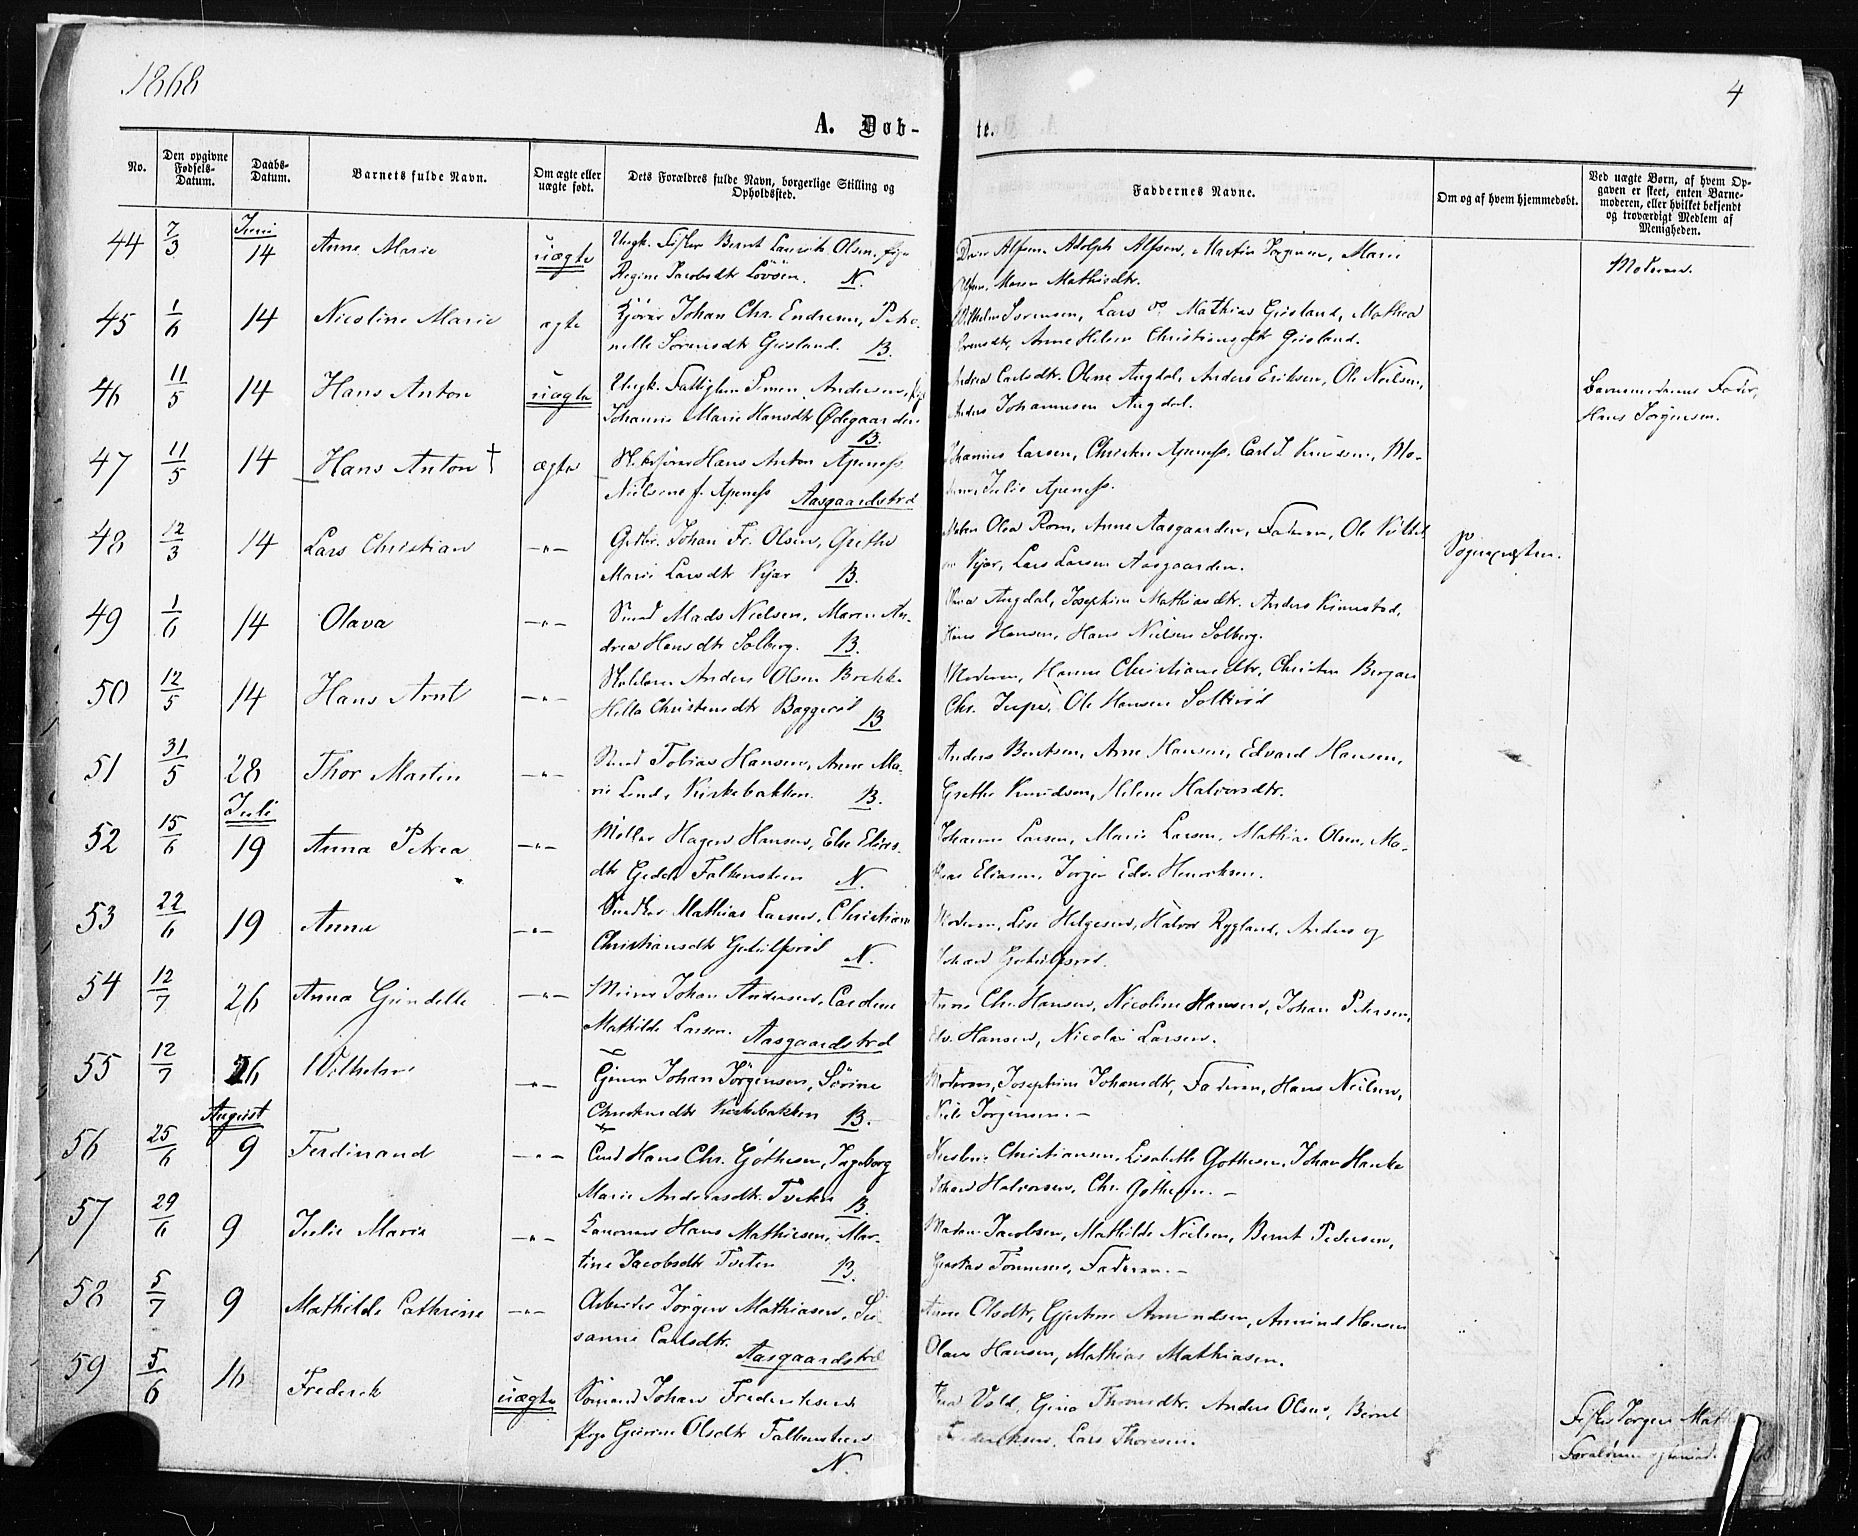 1868
4
A. Døb-
te.
No.
Den opgivne Fødsels-Datum.
Daabs-Datum.
Barnets fulde Navn.
Om ægte eller uægte født.
Dets Forældres fulde Navn, borgerlige Stilling og Opholdssted.
Faddernes Navne.
Om og af hvem hjemmedøbt.
Ved uægte Børn, af hvem Op-
gaven er skeet, enten Barne-
moderen, eller hvilket bekjendt
og troværdigt Medlem af
Menigheden.
44 7/3 Juni 14 Anne Marie uægte Ungk. Fisker Bernt Laurits Olsen, pige
Regine Jacobsdtr Lövöen. N.
Alfsen, Adolph Alfsen, Martin Jørgensen, Marie
Olsen, Maren Mathisdtr.
Moderen.
45 1/6 14 Nicoline Marie ægte Johan Chr. Endresen, Petro-
nelle Sørensdtr Grisland. B.
Wilhelm Sørensen, Lars og Mathias Grisland, Mathea
Sørensdtr, Anne Helene Christiansdtr Grisland.
46 11/5 14 Hans Anton uægte Ungk. Andersen, pige
Johanne Marie Hansdtr Ødegaarden
B.
Andrea Carlsdtr. Oline Augdal, Anders Eriksen, Ole Neilsen,
Anders Johannesen Augdal.
Barnemoderens Fader,
Hans Jørgensen.
47 11/5 14 Hans Anton † ægte Hans Anton Apeness
Nielsine f. Apeness Aasgaardstrd
Johannes Larsen, Christen Apeness. Carl J. Knudsen, Mo-
deren, Julie Apeness.
48 12/3 14 Lars Christian -"- Johan Fr. Olsen, Grethe
Marie Larsdtr Kjær B.
Maren Olea Rom, Anne Aasgaarden, Faderen, Ole
Kjær, Lars Larsen Aasgaarden.
Sognepresten.
49 1/6 14 Olava -"- Smed Mads Nielsen, Maren An-
drea Hansdtr Solberg. B.
Augdal, Josephine Mathiasdtr. Anders Kimestad,
Hans Hansen, Hans Nielsen Solberg.
50 12/5 14 Hans Arnt -"- Anders Olsen Brekke
Helle Christensdtr Baggerød B
Moderen, Karen Christiansdtr, Christen Bergan
Chr. Ole Hansen Solberød
51 31/5 28 Thor Martin -"- Smed Tobias Hansen, Anne Ma-
rie Lund, Kirkebakken. B.
Anders Berntsen, Arne Hansen, Edvard Hansen,
Grethe Knudsen, Helene Halvorsdtr.
52 15/6 Juli 19 Anna Petrea -"- Møller Hagen Hansen, Else Elias-
dtr Falkensteen N.
Johanne Larsen, Marie Larsen, Mathias Olsen, Ma-
thias Eliasen, Jørgen Edv. Henriksen.
53 22/6 19 Anna -"- Mathias Larsen, Christiane
Christiansdtr Gutulfsrød N.
Moderen, Lise Helgesen, Halvor Rygland, Anders og
Johan Gutulfsrød.
54 12/7 26 Anna Gundelle -"- Murer Johan Andersen, Caroline
Mathilde Larsen. Aasgaardstrd
Anne Chr. Hansen, Nicoline Hansen, Johan Petersen,
Edv. Hansen, Nicolai Larsen.
55 12/7 26 Wilhelm -"- Johan Jørgensen, Sørine
Christensdtr Kirkebakken B.
Moderen, Josephine Johansdtr, Faderen, Hans Neilsen,
Niels Jørgensen.-
56 25/6 August 9 Ferdinand -"- Hans Chr. Gøthesen, Ingeborg
Marie Andersdtr. Tveten B.
Christiansen, Lisabeth Gøthesen, Johan
Johan Halvorsen, Chr. Gøthesen.-
57 29/6 9 Julie Marie -"- Hans Mathisen, Mar-
tine Jacobsdtr Tveten B.
Jacobsen, Mathilde Nielsen, Bernt Pedersen,
Tønnesen, Faderen.-
58 5/7 9 Mathilde Cathrine -"- Arbeider Jørgen Mathiasen, Su-
sanne Carlsdtr. Aasgaardstrd
Anne Olsdtr, Amundsen, Hansen
Olaus Hansen, Mathias Mathiasen.
59 5/6 16 Frederik uægte Sømand Johan Frederiksen
Pige Olsdtr Falkensteen
N.
Vold, Gina Thomsdtr. Anders Olsen, Bernt
Frederiksen, Lars Thoresen.
Fisker Jørgen
Forældrene